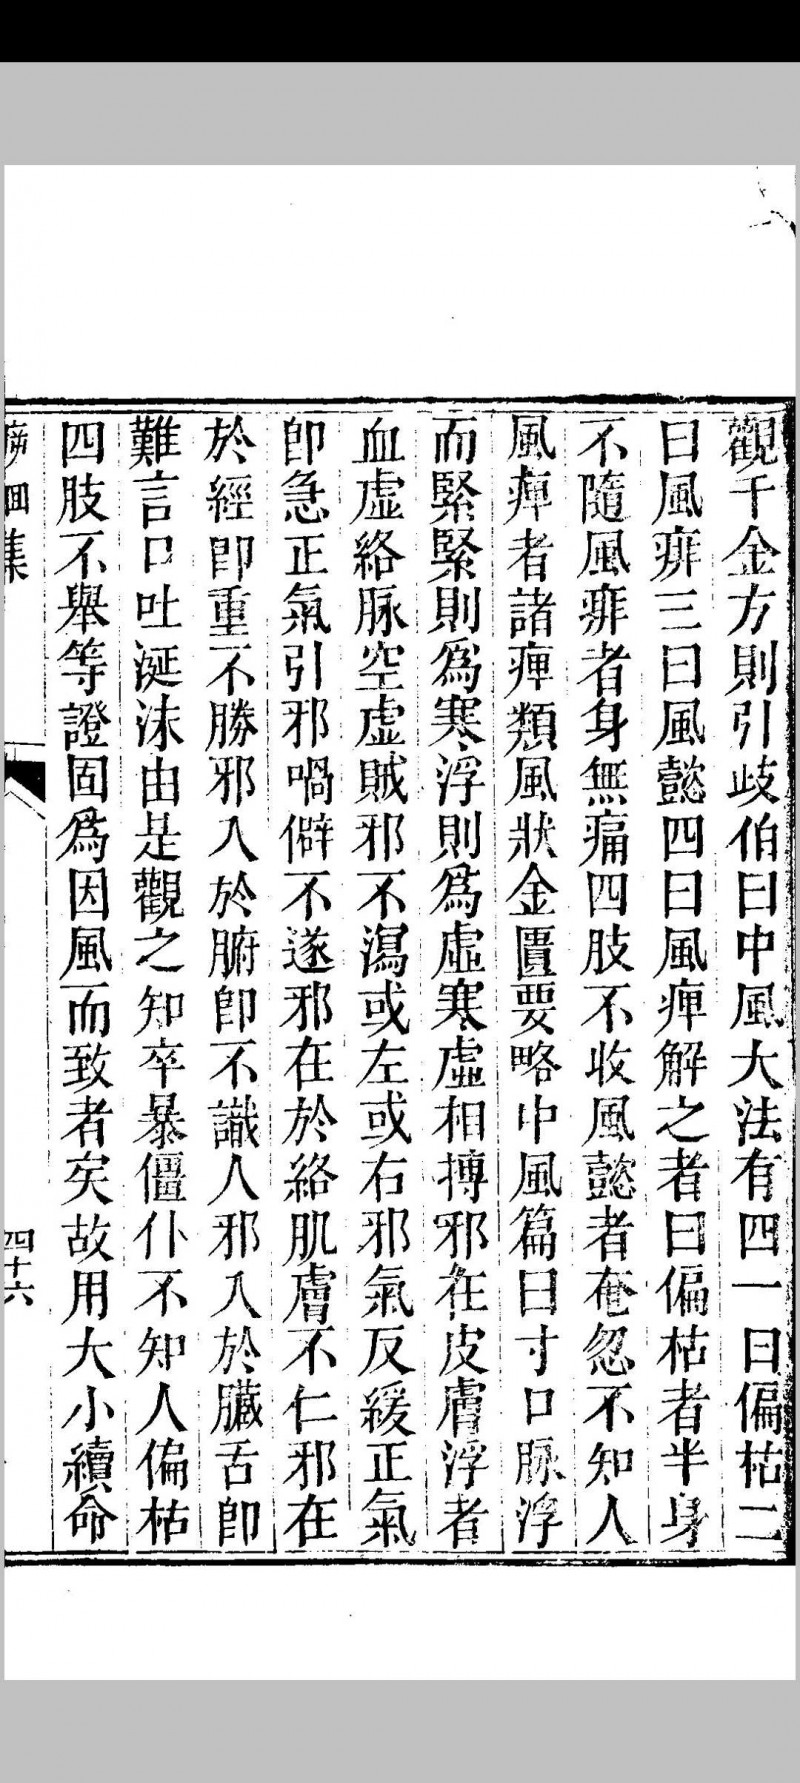 觀千金方則引歧伯曰中風大法有四一曰偏枯二
曰風痱三曰風懿四曰風痺解之者曰偏枯者半身
不隨風痱者身無痛四肢不收風懿者奄忽不知人
風痺者諸痺類風狀金匱要略中風篇曰寸口脉浮
而緊緊則爲寒浮則爲虛寒虛相摶邪在皮膚浮者
血虛絡脉空虛賊邪不瀉或左或右邪氣反緩正氣
卽急正氣引邪喎僻不遂邪在於絡肌膚不仁邪在
於經卽重不勝邪入於腑卽不識人邪入於臟舌卽
難言口吐涎沫由是觀之知卒暴僵仆不知人偏枯
四肢不舉等證固爲因風而致者矣故用大小續命
集
四十六